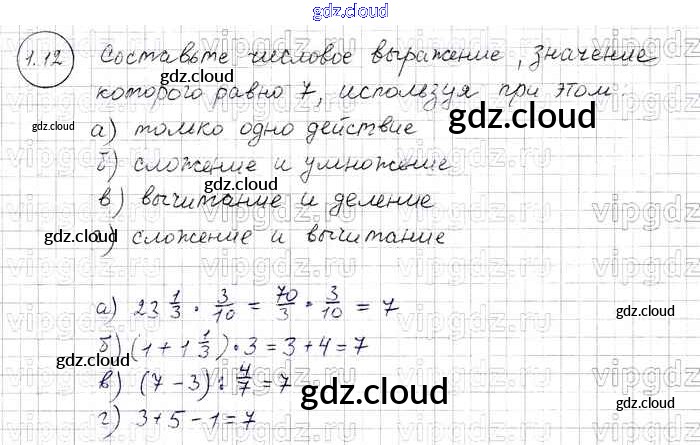 gdz.cloud
1.12 Составьте числовое выражение, значение
gdz.cloud
которого равно 7, используя при этом:
gdz.cloud
gdz.cloud
а) только одно действие
б) сложение и умножение
gdz.cloud
в) вычитание и деление
gdz.cloud
г) сложение и вычитание
vipgdz.ru
а) 23 1/3 · 3/10 = 70/3 · 3/10 = 7
gdz.cloud
б) (1 + 1 1/3) · 3 = 3 + 4 = 7
gdz.cloud
в) (7 - 3) : 4/7 = 7
gdz.cloud
г) 3 + 5 - 1 = 7
gdz.cloud